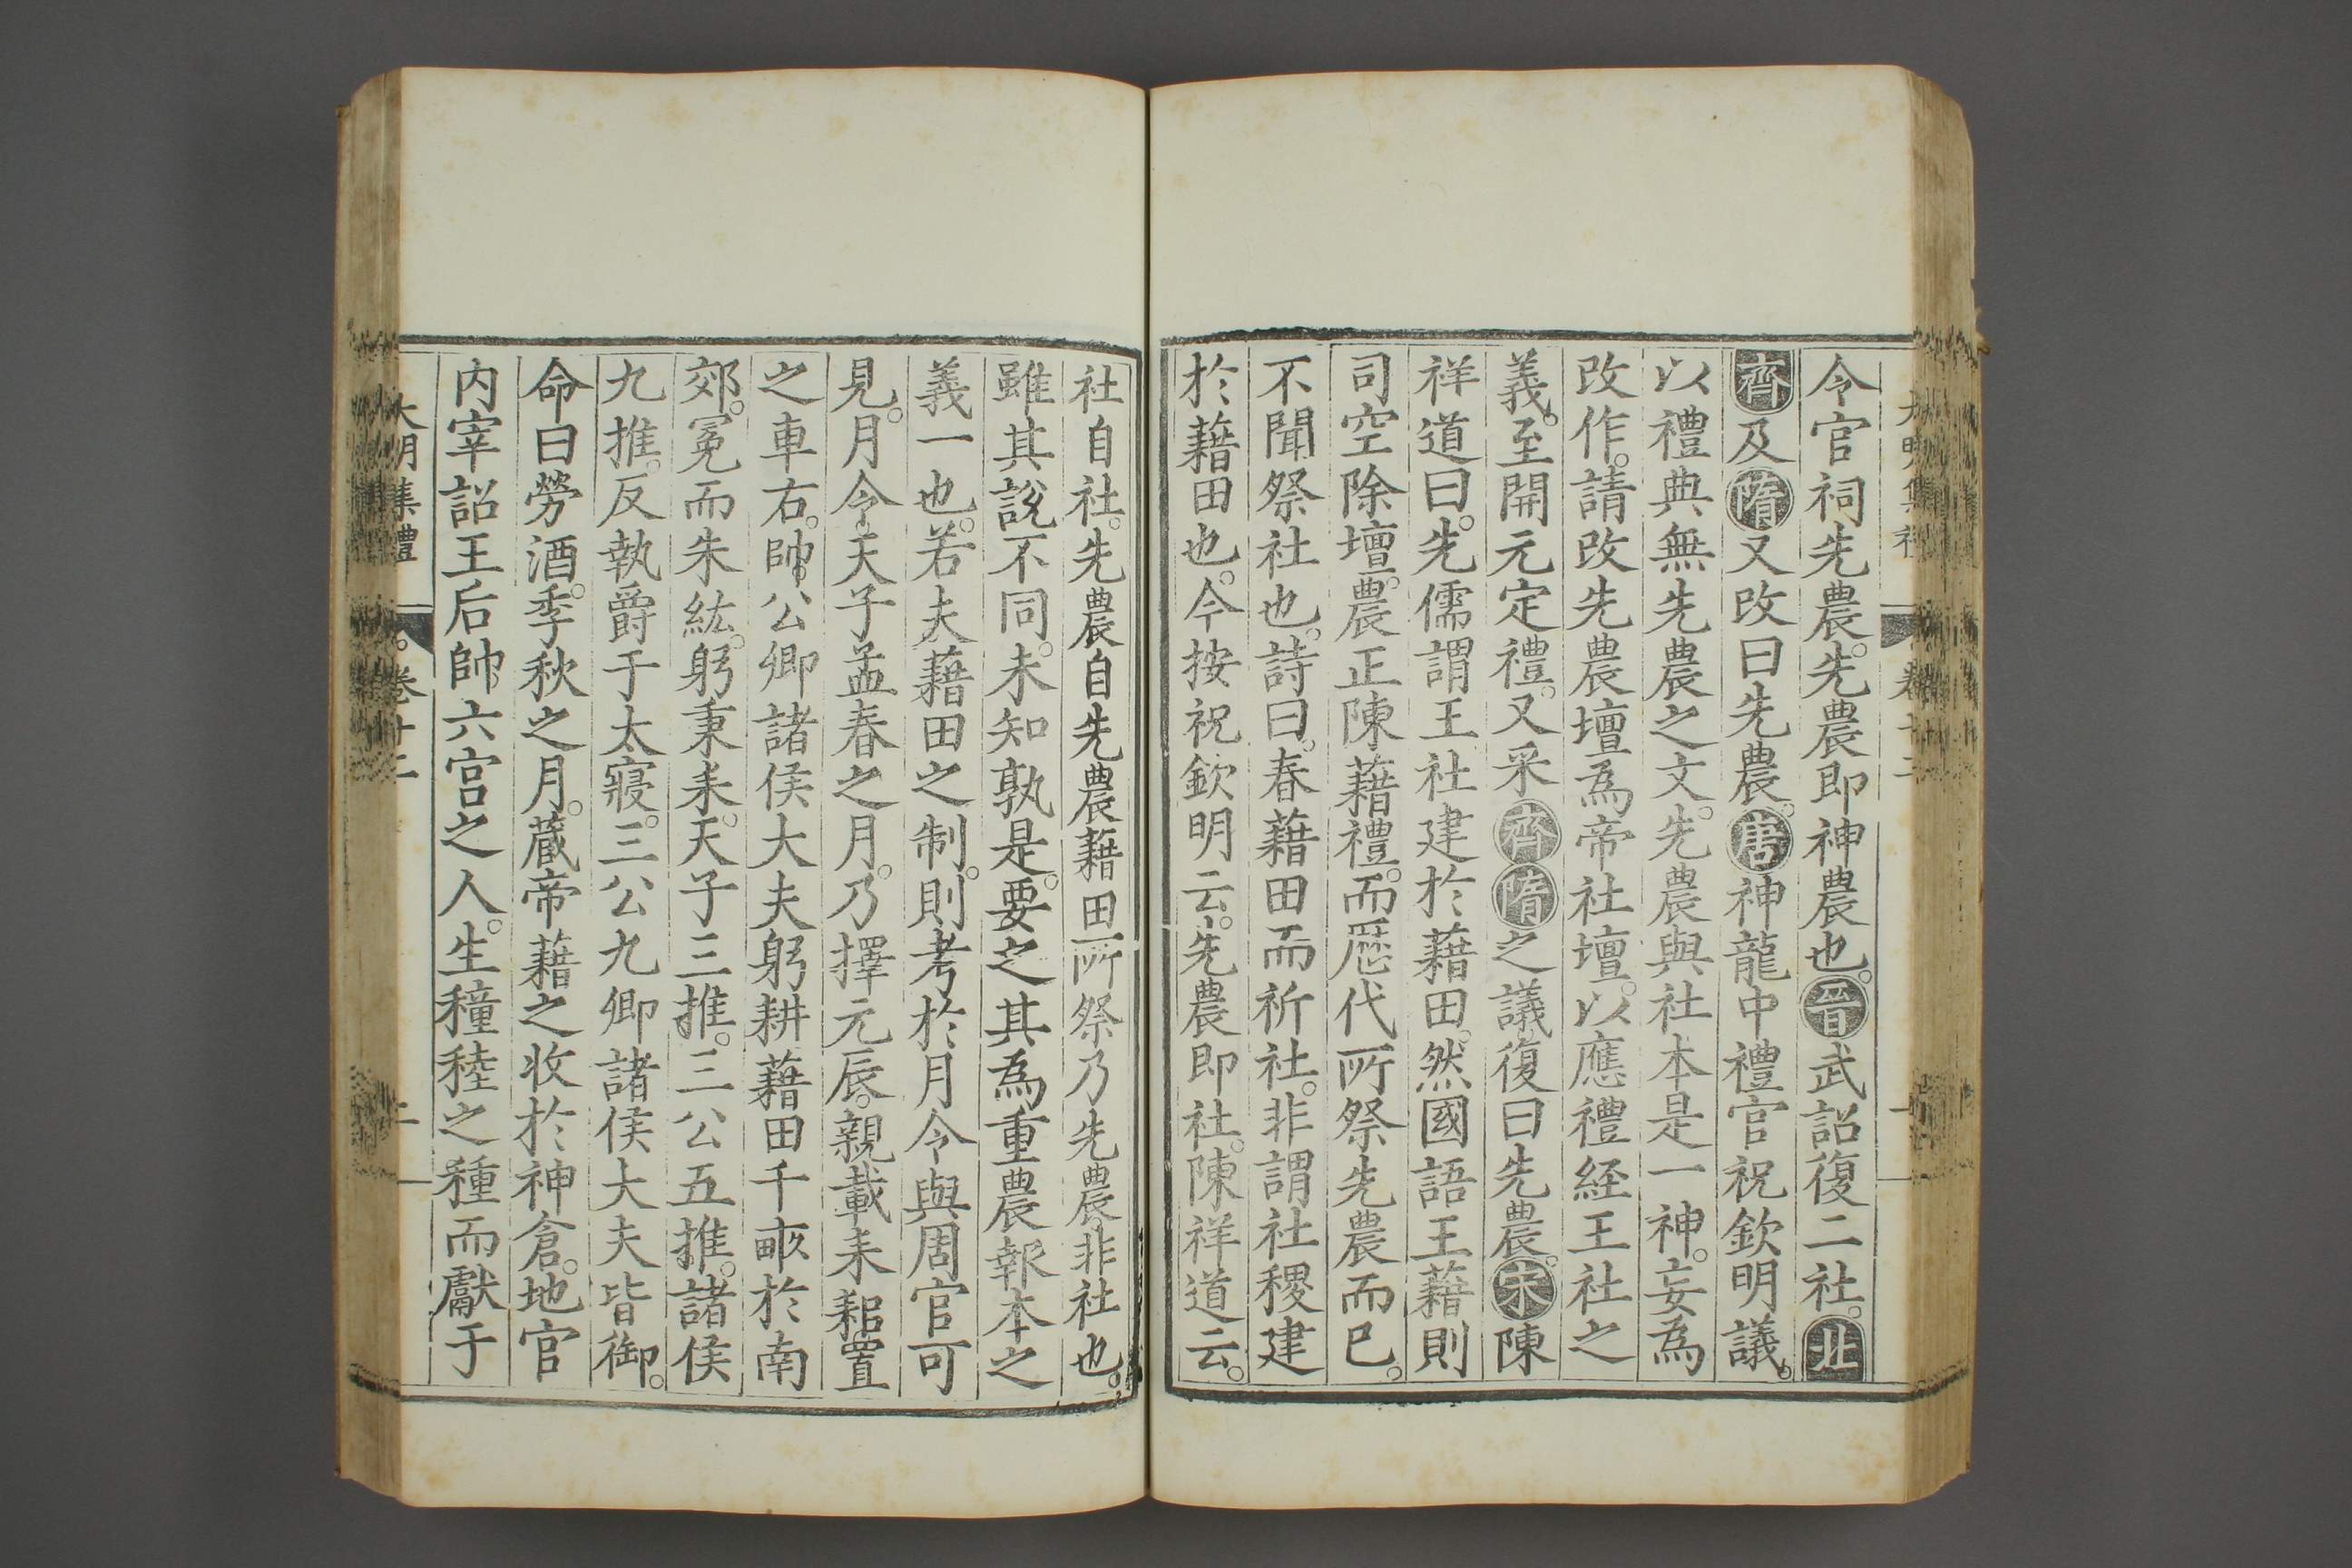 令官祠先農。先農即神農也。晉武詔復二社。北
齊及隋又改曰先農。唐神龍中禮官祝欽明議。
以禮典無先農之文。先農與社本是一神。妄為
改作。請改先農壇為帝社壇。以應禮經王社之
義。至開元定禮。又采齊隋之議復曰先農。宋陳
祥道曰。先儒謂王社建於藉田。然國語王藉則
司空除壇。農正陳藉禮。而歷代所祭先農而已。
不聞祭社也。詩曰。春藉田而祈社。非謂社稷建
於藉田也。今按祝欽明云。先農即社。陳祥道云。
社自社。先農自先農藉田所祭乃先農非社也。
雖其說不同。未知孰是。要之其為重農報本之
義一也。若夫藉田之制。則考於月令與周官可
見。月令。天子孟春之月。乃擇元辰。親載耒耜置
之車右。帥公卿諸侯大夫躬耕藉田千畝於南
郊。冕而朱紘。躬秉耒。天子三推。三公五推。諸侯
九推。反執爵于太寢。三公九卿諸侯大夫皆御。
命曰勞酒。季秋之月。蔵帝藉之收於神倉。地官
内宰詔王后帥六宮之人。生穜稑之種而獻于
大明集禮 卷十二 二